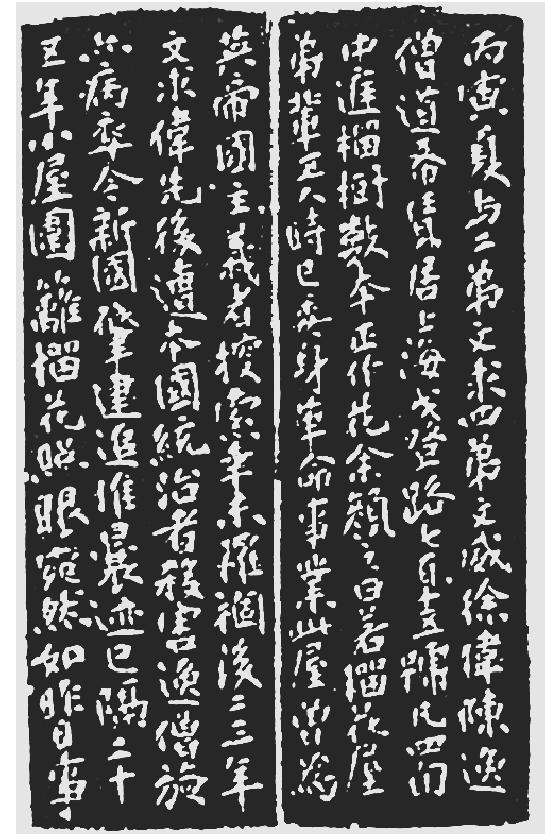 丙寅夏与二弟文求四弟文威徐偉陳逸
僧道希僦居上海戈登路七百十五號凡四間
中庭榴樹數本正作花余顏之曰若榴花屋
弟輩五人時已委身革命事業此屋曾為
英帝國主義者搜索幸未罹禍後二三年
文求偉先後遭本國統治者殘害逸僧旋
亦病卒今新國肇建追惟曩迹已隔二十
五年小屋圍籬榴花照眼宛然如昨日事